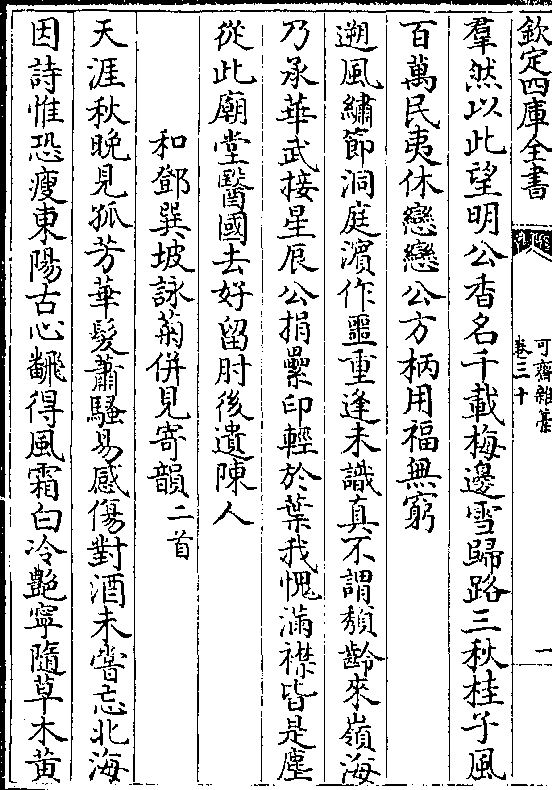 欽定四庫全書
可齋雜藁
卷三十
一
羣然以此望明公香名千載梅邊雪歸路三秋桂子風
百萬民夷休戀戀公方柄用福無窮
遡風繡節洞庭濵作噩重逢未識真不謂頽齡來嶺海
乃承華武接星辰公捐纍印輕於葉我愧滿襟皆是塵
從此廟堂醫國去好留肘後遺陳人
和鄧巽坡詠菊併見寄韻二首
天涯秋晚見孤芳華髮蕭騷易感傷對酒未嘗忘北海
因詩惟恐瘦東陽古心飜得風霜白冷艶寜隨草木黃